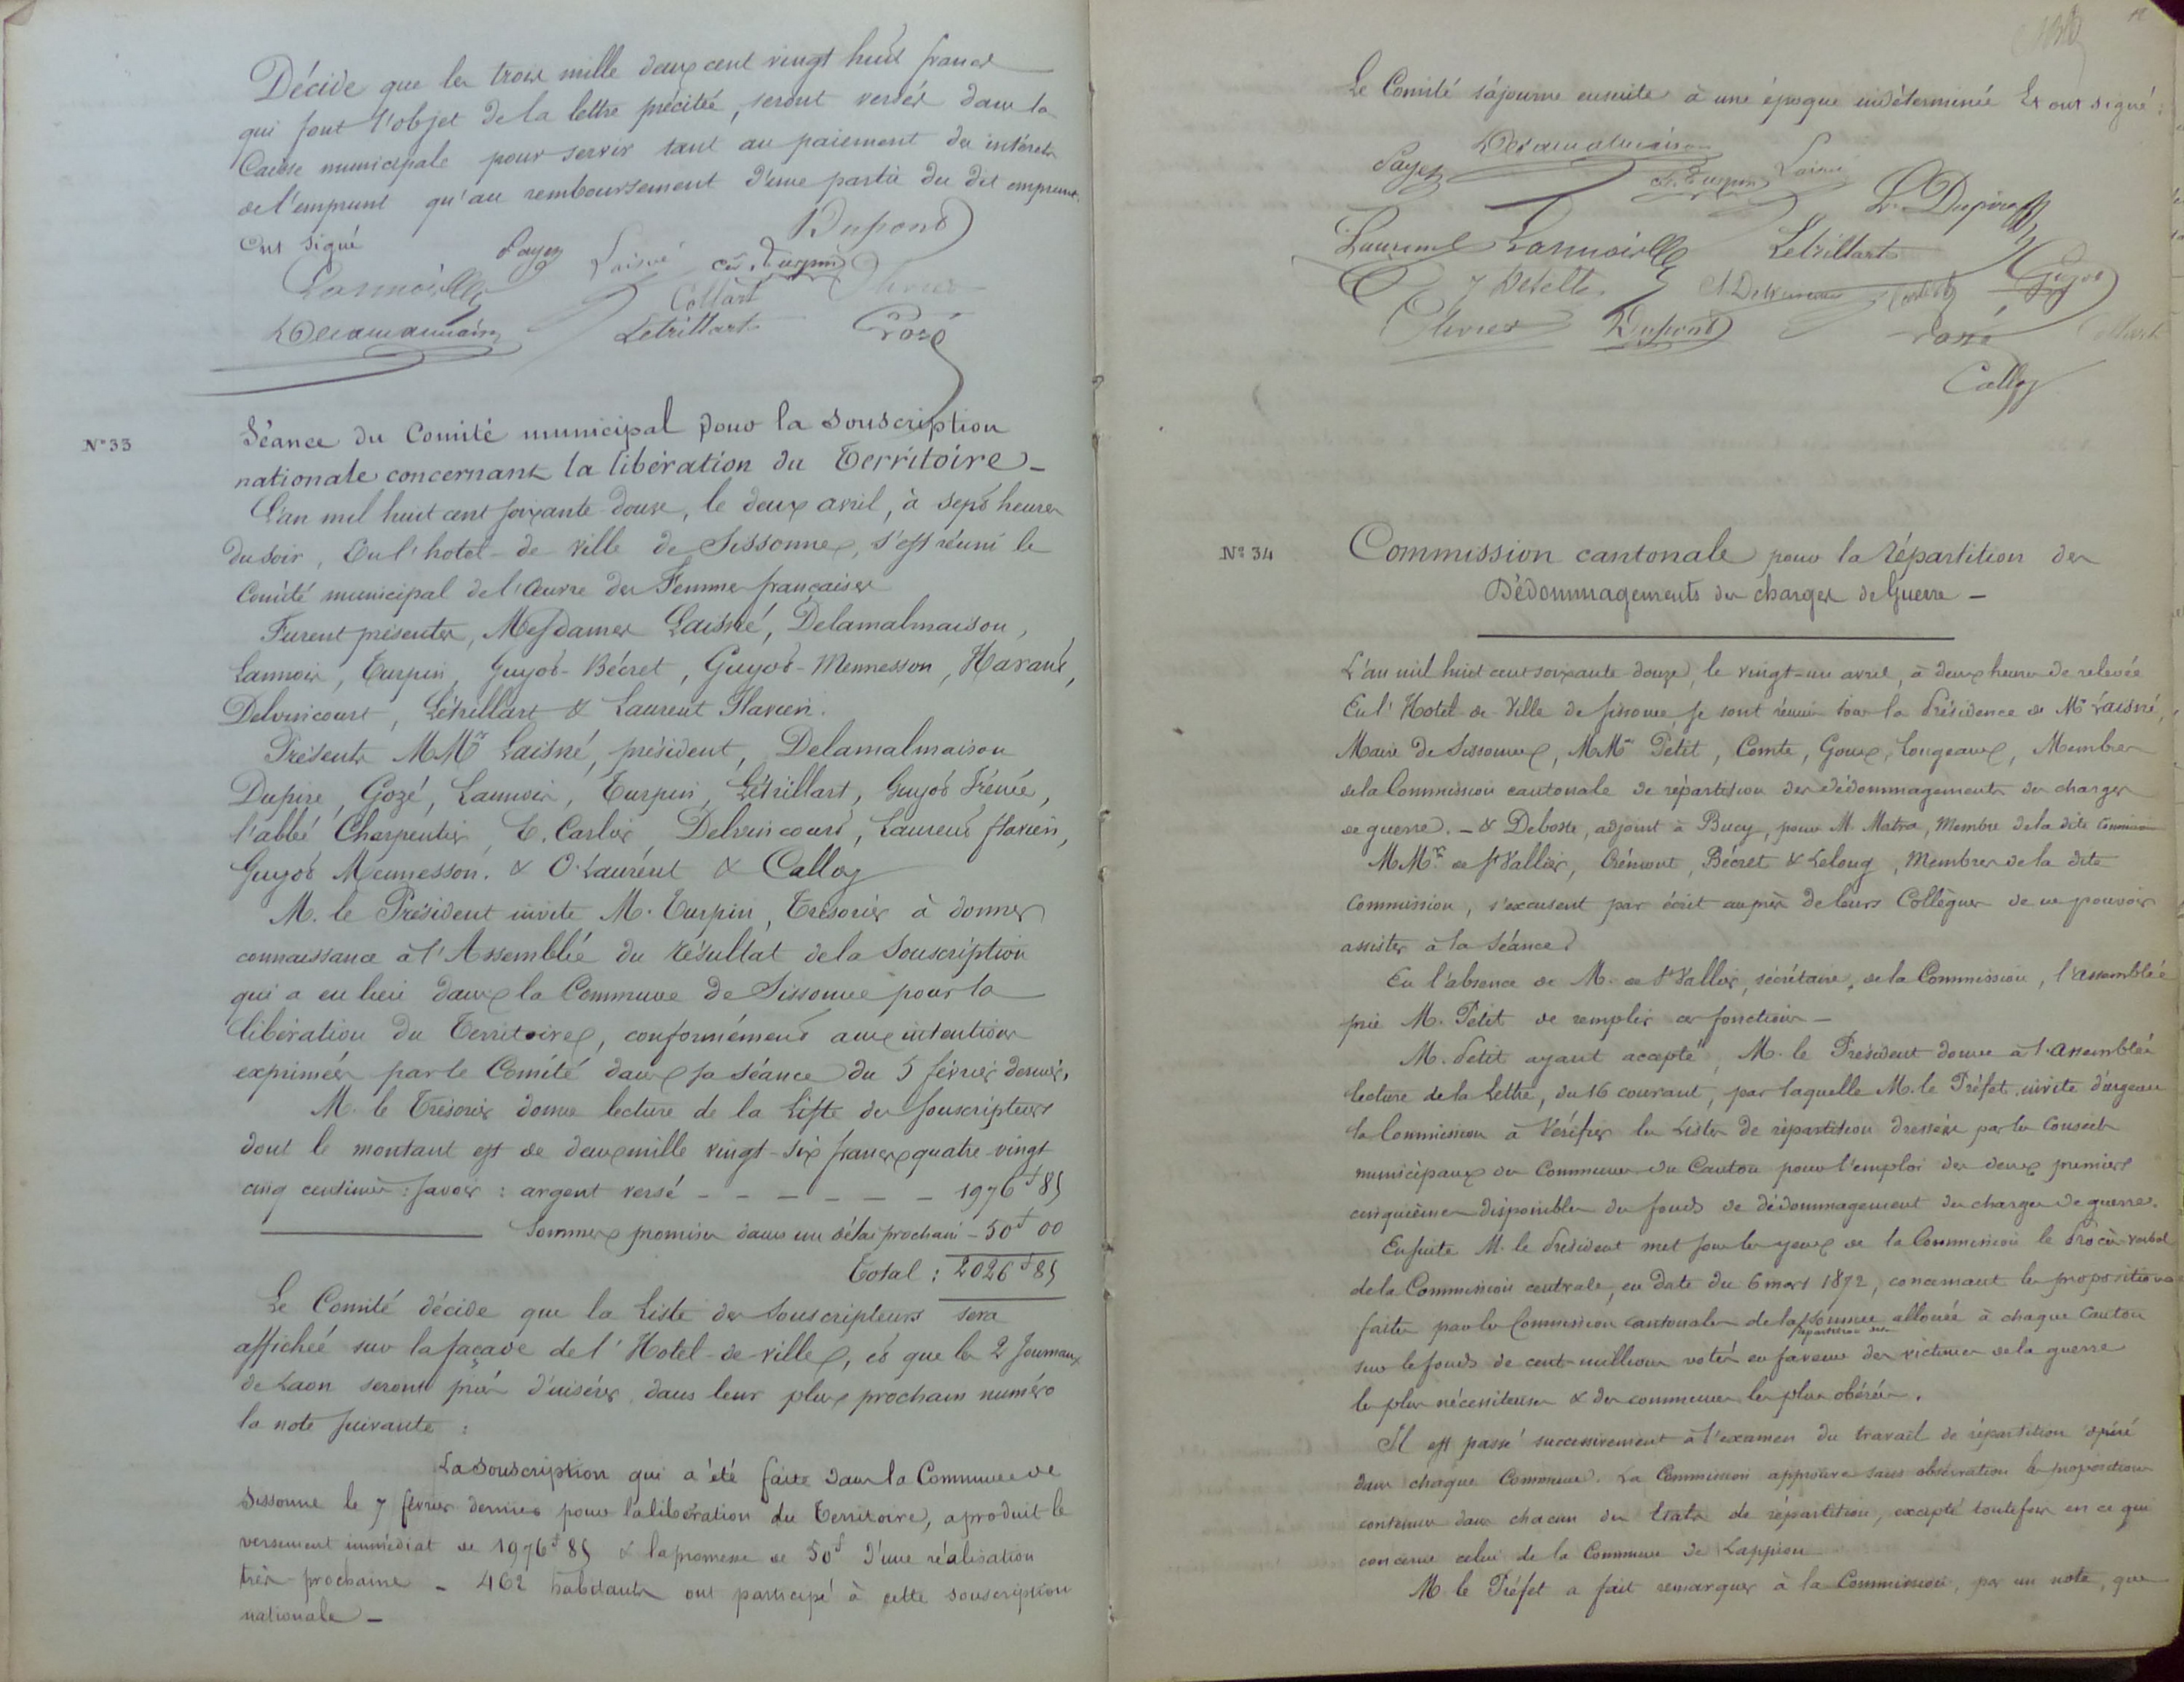 Décide que les trois mille deux cent vingt huit francs
qui font l'objet de la lettre précitée, seront versés dans la
Caisse municipale pour servir tant au paiement des intérêts
de l'emprunt qu'au remboursement d'une partie du dit emprunt.
Ont signé
Dupond
Payen Laisné Turpin
Lannois Collart Olivier
Delamalmaison Letrillart Gozé
N° 33
Séance du Comité municipal pour la souscription
nationale concernant la libération du Territoire -
L'an mil huit cent soixante-douze, le deux avril, à sept heures
du soir, En l'hotel-de-ville de Sissonne, s'est réuni le
Comité municipal de l'Œuvre des Femmes françaises
Furent présentes, Mesdames Laisné, Delamalmaison,
Lannois, Turpin, Guyot-Bécret, Guyot-Mennesson, Havané,
Delvincourt, Létrillart & Laurent Flavien.
Présents MMrs Laisné, président, Delamalmaison
Dupire, Gozé, Lannois, Turpin, Létrillart, Guyot Irénée,
l'abbé Charpentier, E. Carlier, Delvincourt, Laurent flavien,
Guyot Mennesson. & O. Laurent & Callay
M. le Président invite M. Turpin, Trésorier à donner
connaissance à l'Assemblée du résultat de la Souscription
qui a eu lieu dans la Commune de Sissonne pour la
libération du Territoire, conformément aux intentions
exprimées par le Comité dans sa séance du 5 février dernier.
M. le Trésorier donne lecture de la Liste des souscripteurs
dont le montant est de deux mille vingt-six francs quatre-vingt
cinq centimes : savoir : argent versé - - - - - - 1976f 85
Sommes promises dans un délai prochain - 50f 00
Total : 2026f 85
Le Comité décide que la Liste des Souscripteurs sera
affichée sur la façade de l'Hotel-de-ville, et que les 2 Journaux
de Laon seront priés d'insérer dans leur plus prochain numéro
la note suivante :
La souscription qui a été faite dans la Commune de
Sissonne le 7 février dernier pour la libération du Territoire, a produit le
versement immédiat de 1976f 85 & la promesse de 50f d'une réalisation
très-prochaine - 462 habitants ont participé à cette souscription
nationale -
Le Comité s'ajourne ensuite à une époque indéterminée Et ont signé :
Delamalmaison
Payen Turpin Laisné
L. Dupire
Laurent Lannois Letrillart
Guyot
Olivier Dupond Gozé Collart
Callay
N° 34
Commission cantonale pour la répartition des
Dédommagements des charges de Guerre -
L'an mil huit cent soixante-douze, le vingt-un avril, à deux heures de relevée
En l'Hotel-de-Ville de Sissonne, se sont réunis sous la Présidence de Mr Laisné,
Maire de Sissonne, MMrs Petit, Comte, Goux, Longeaux, Membres
de la Commission cantonale de répartition des dédommagements des charges
de guerre. - & Deboste, adjoint à Bucy, pour M. Matra, Membre de la dite Commission
MMrs de St Vallier, Crémont, Bécret & Lelong, Membres de la dite
Commission, s'excusent par écrit auprès de leurs Collègues de ne pouvoir
assister à la Séance
En l'absence de M. de St Vallier, sécrétaire, de la Commission, l'assemblée
prie M. Petit de remplir ces fonctions -
M. Petit ayant accepté, M. le Président donne à l'assemblée
lecture de la lettre, du 16 courant, par laquelle M. le Préfet invite d'urgence
la Commission à Vérifier les Listes de répartition dressées par les Conseils
municipaux des Communes du Canton pour l'emploi des deux premiers
cinquièmes disponibles du fonds de dédommagement des charges de guerre.
Ensuite M. le Président met sous les yeux de la Commission le Procès-verbal
de la Commission centrale, en date du 6 mars 1872, concernant les propositions
faites par les Commissions cantonales de la somme allouée à chaque Canton
répartition
sur le fonds de cent millions votés en faveur des victimes de la guerre
les plus nécessiteuses & des communes les plus obérées.
Il est passé successivement à l'examen du travail de répartition opéré
dans chaque Commune. La Commission approuve sans observation les propositions
contenues dans chacun des Etats de répartition, excepté toutefois en ce qui
concerne celui de la Commune de Lappion
M. le Préfet a fait remarquer à la Commission, par une note, que